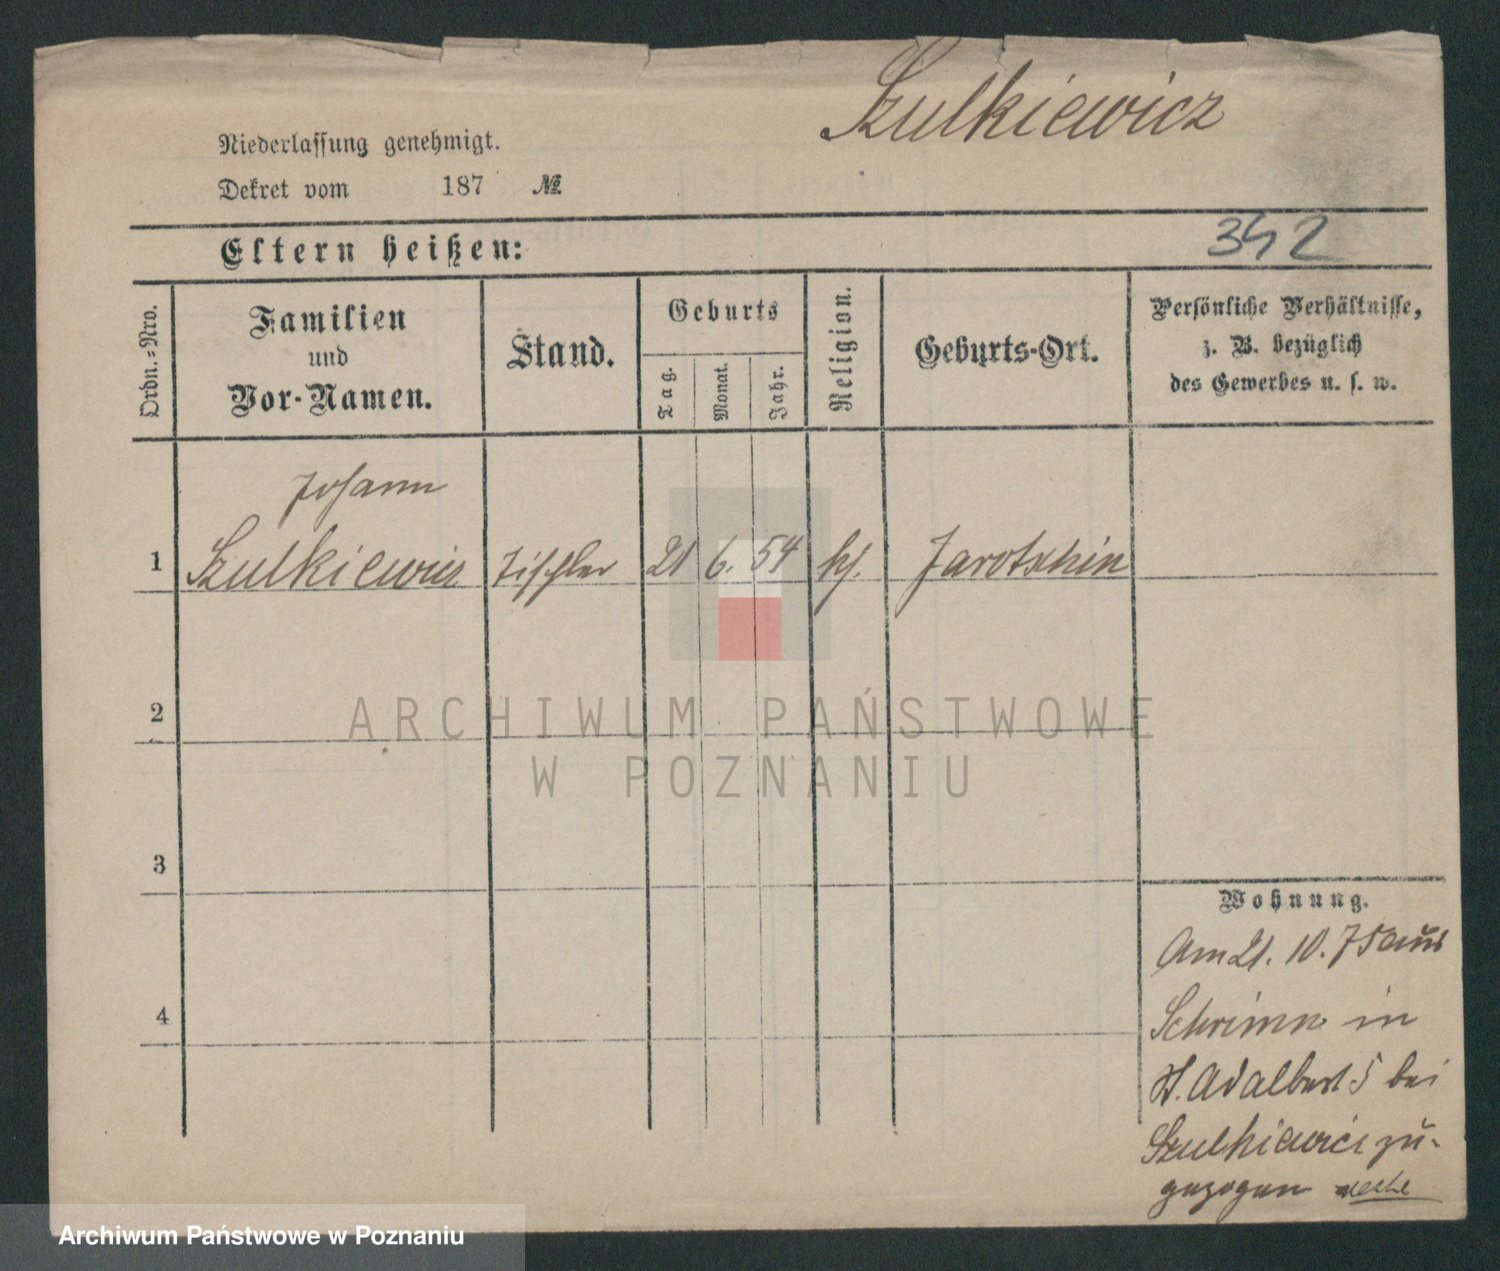 Szulkiewicz
Niederlassung genehmigt.
Dekret vom 187 №
342
Eltern heißen:
Ordn.=Nro.
Familien
und
Vor-Namen.
Stand.
Geburts
Tag.
Monat.
Jahr.
Religion.
Geburts-Ort.
Persönliche Verhältnisse,
z. B. bezüglich
des Gewerbes u. s. w.
Johann
1 Szulkiewicz Tischler 21 6. 54 kf. Jarotschin
2
ARCHIWUM PAŃSTWOWE
W POZNANIU
3
Wohnung.
Am 21. 10. 75 aus
4
Schrimm in
St. Adalbert 5 bei
Szulkiewicz zu-
gezogen
Archiwum Państwowe w Poznaniu